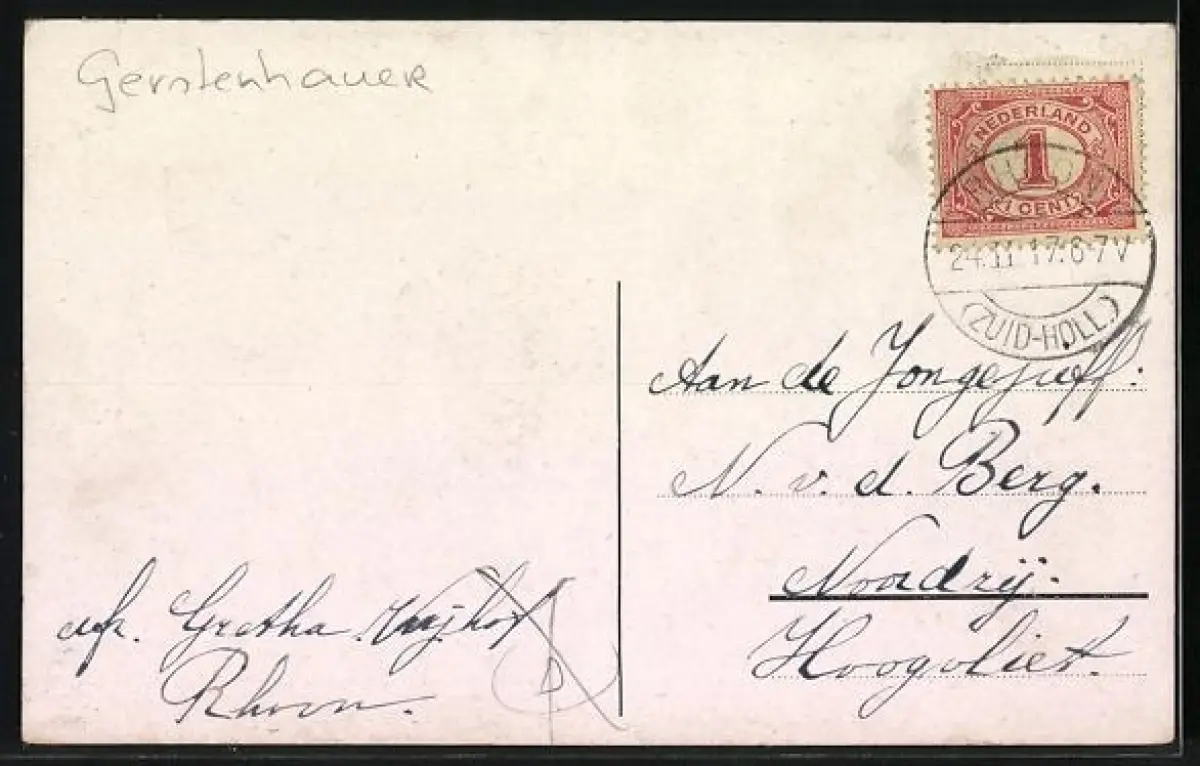 Gerstenhauer
NEDERLAND
1
1 CENT
24.11 17.6-7V
(ZUID-HOLL.)
Aan de Jongejuff.
N. v. d. Berg.
Noordzij.
Hoogvliet.
afz. Gretha
Rhoon.